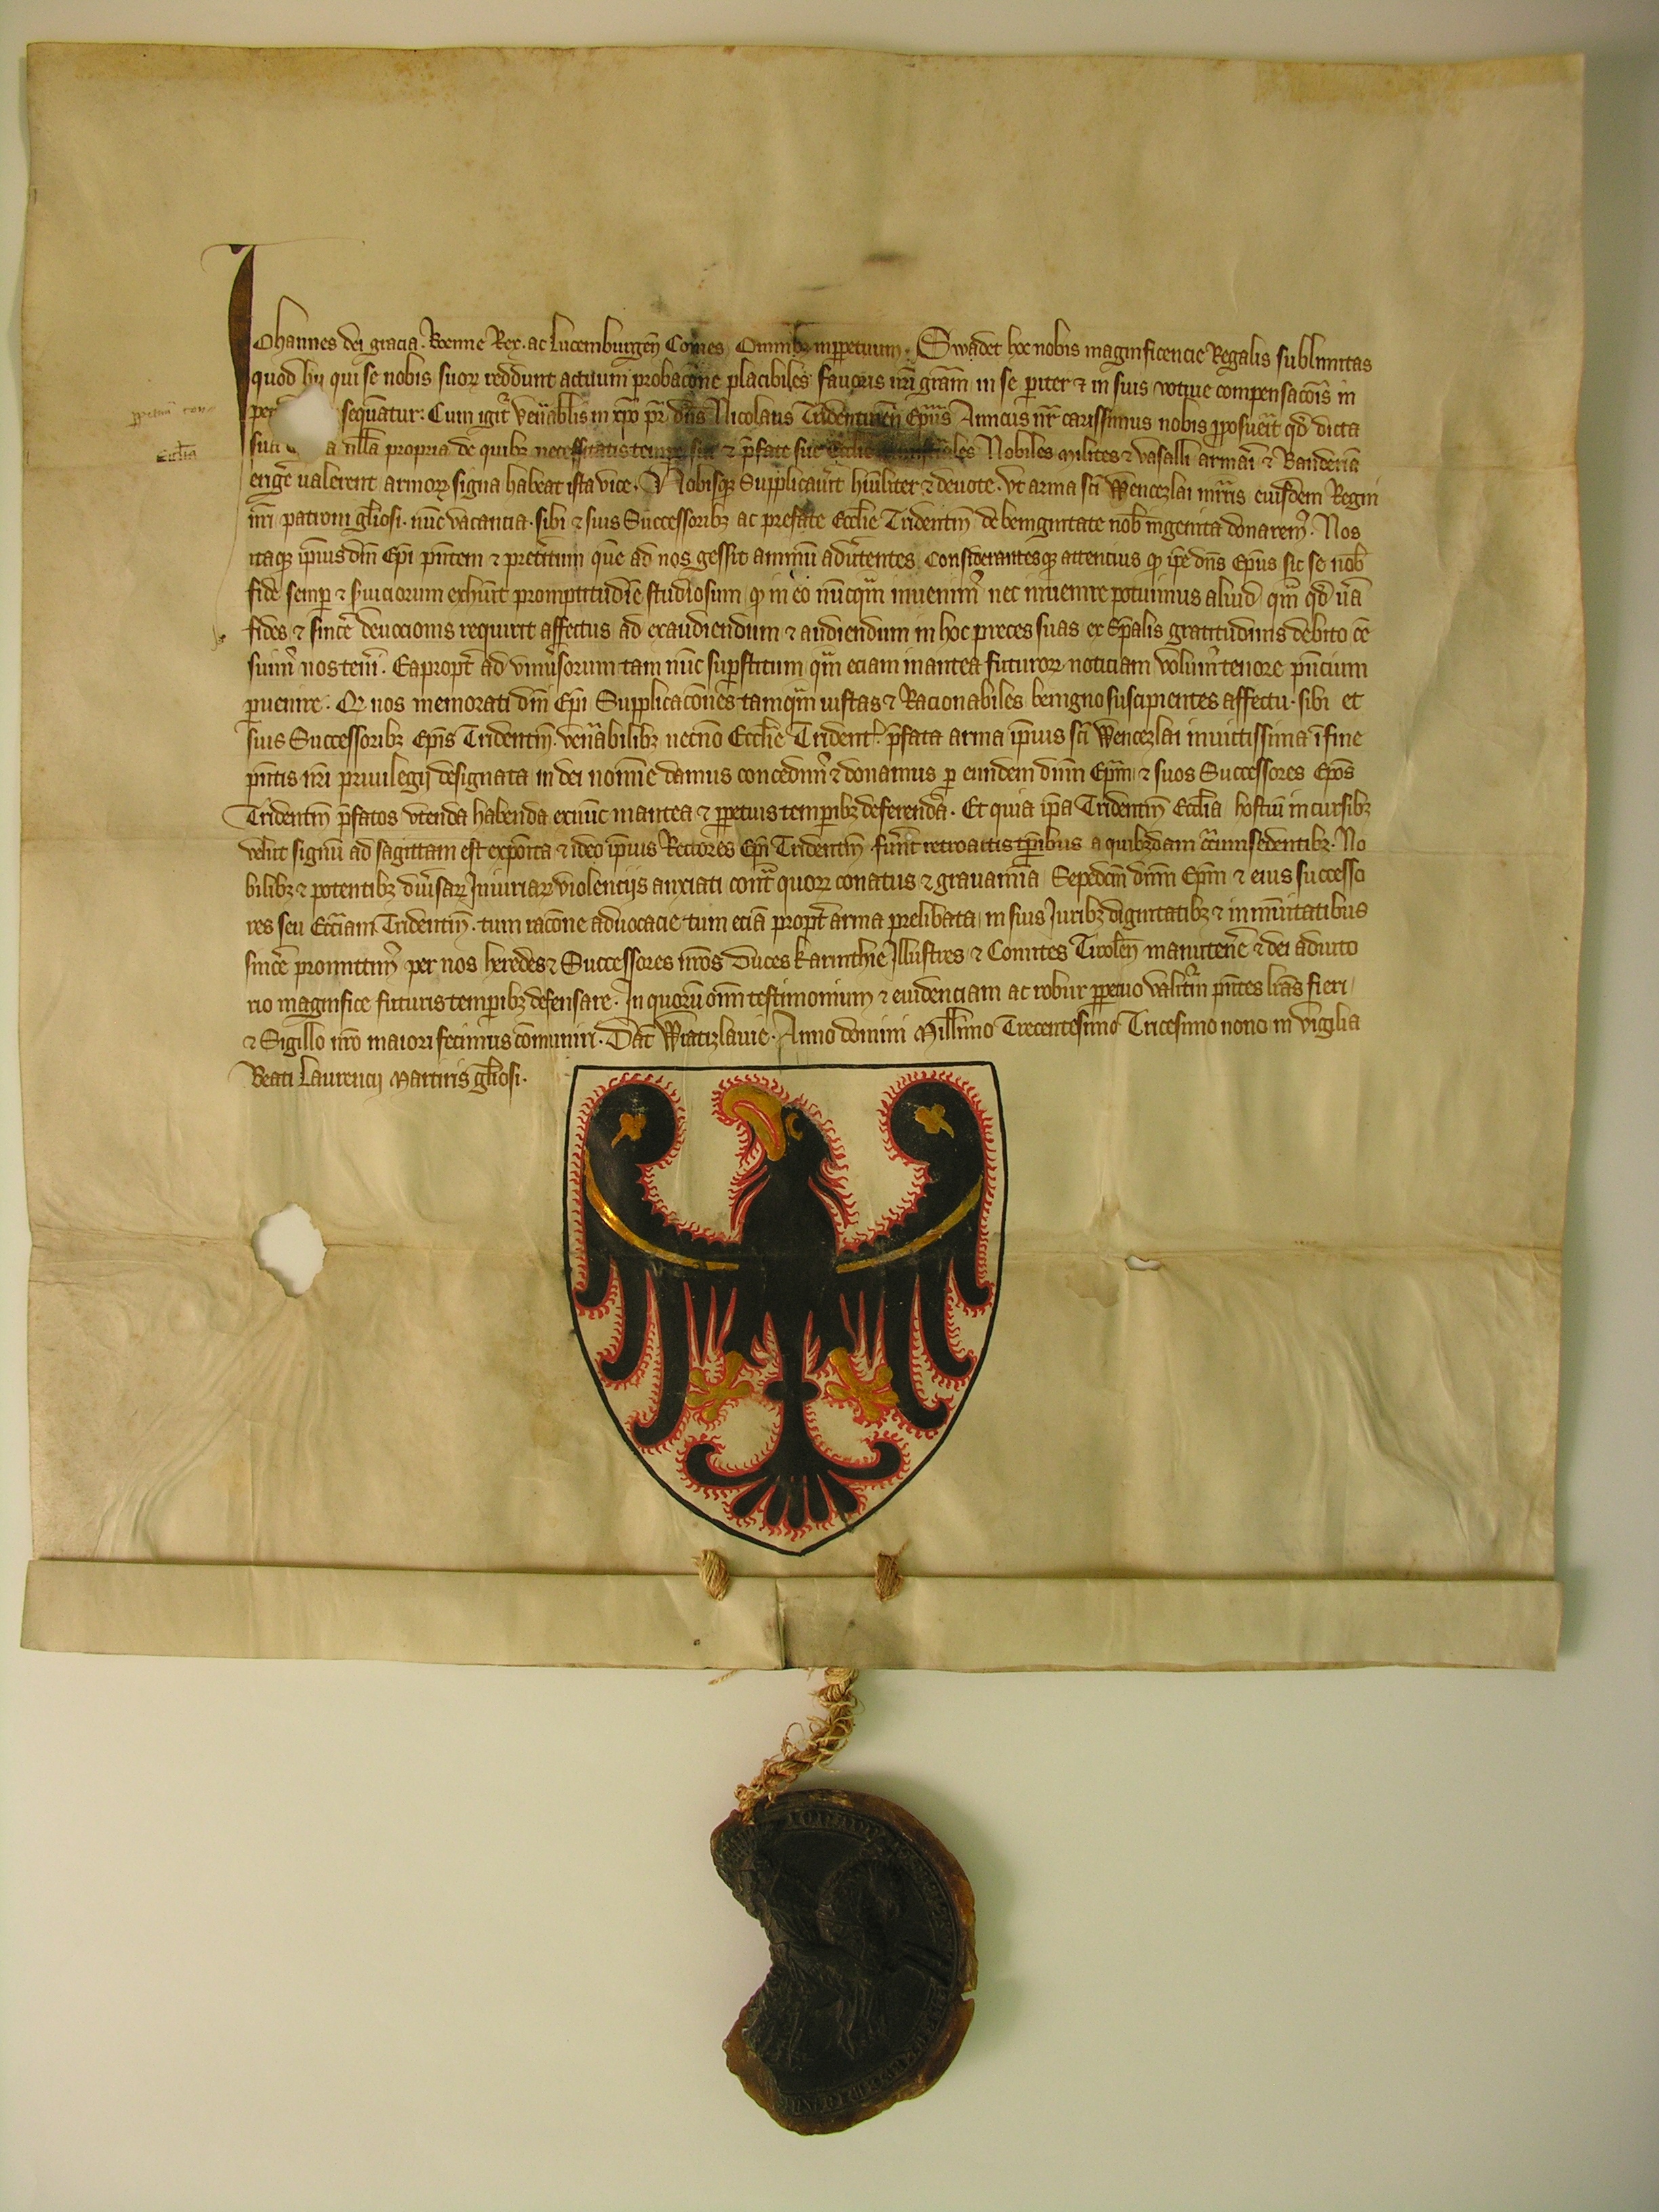 Johannes dei gracia Boemie Rex ac Lucemburgeñ Comes Omnibꝫ inꝑpetuum. Swadet hoc nobis magnificencie Regalis sublimitas
quod hij qui se nobis suoꝝ reddunt actuum probacōne placibiles fauoris nr̄i grām in se pariter ⁊ in suis votiue compensacōis in
sequātur. Cum igit̄ veñabilis in xp̄o pr̄ dn̄s Nicolaus Tridentineñ Ep̄us Amicus nr̄ carissimus nobis ꝓposuerit qd̄ dicta
sua nll̄a propria de quibꝫ necessitatis tempore sue ⁊ p̄fate sue Ecclie Nobiles milites ⁊ vasalli armari ⁊ Banderia
erigere ualerent armoꝝ signa habeat ista vice. Nobisqꝫ Supplicauerit hūiliter ⁊ deuote. vt arma sc̄i Wenczlai mr̄tis eiusdem Regni
nr̄i patroni gl̄iosi. nūc vacantia. sibi ⁊ suis Successoribꝫ ac prefate Eccl̄ie Tridentiñ de benignitate nob̄ ingenita donarem̄. Nos
itaqꝫ ip̄ius dn̄i Ep̄i pn̄tem ⁊ pretitum quē ad nos gessit animū aduertentes Considerantesqꝫ attencius qꝫ ip̄e dn̄s Ep̄us sic se nob̄
fide semp̄ ⁊ seruiciorum exhibuit promptitudīe studiosum qꝫ in eo nūcqꝫ inuenim̄ nec inuenire potuimus aliud qꝫ qd̄ uera
fides ⁊ sincere deuocionis requirit affectus ad exaudiendum ⁊ audiendum in hoc preces suas ex Sp̄alis gratitudinis debito cē
suim̄ nos teneri. Eapropt̄ ad vniuersorum tam nūc superstitum qꝫ eciam inantea futuroꝝ noticiam volum̄ tenore pn̄cium
ꝑuenire. Qꝫ nos memorati dn̄i Ep̄i Supplicacōnes tamqꝫ iustas ⁊ Racionabiles benigno suscipientes affectu. sibi et
suis Successoribꝫ Ep̄is Tridentiñ. ven̄abilibꝫ necnō Ecclīe Trident̄. p̄fata arma ip̄ius sc̄i Wenczlai inuictissima ī fine
pn̄tis nr̄i priuilegij designata in dei noīe damus concedim̄ ⁊ donamus ꝑ eundem dn̄m Ep̄m ⁊ suos Successores Ep̄os
Tridentiñ p̄fatos vtenda habenda exnūc inantea ⁊ ꝑpetuis temporibꝫ deferenda. Et quia ip̄a Tridentiñ Eccl̄ia hostiū incursibꝫ
velut signū ad sagittam est expōita ⁊ ideo ip̄ius Rectores Ep̄i Tridentiñ fuer̄t retroactis tēporibus a quibusdam circūsedentibꝫ. No
bilibꝫ ⁊ potentibꝫ diuersaꝝ Iniuriaꝝ violencijs anxiati cont̄ quoꝝ conatus ⁊ grauamīa Sepedcm̄ dn̄m Ep̄m ⁊ eius successo
res seu Eccl̄iam Tridentiñ. tum racōne aduocacie tum eciā propt̄ arma prelibata in suis Iuribꝫ dignitatibꝫ ⁊ inmūitatibus
sincere promittim̄ per nos heredes ⁊ Successores nr̄os Duces Karinthie Illustres ⁊ Comites Tiroleñ manutenere ⁊ dei adiuto
rio magnifice futuris temporibꝫ defensare. In quorū om̄i testimonium ⁊ euidenciam ac robur ꝑpetuo valitur̄ pn̄tes lr̄as fieri
⁊ Sigillo nr̄o maiori fecimus cōmuniri. Dat̄ Wratizlauie. Anno domini Mill̄imo Trecentesimo Tricesimo nono in vigilia
Beati Laurencij Martiris gl̄iosi.